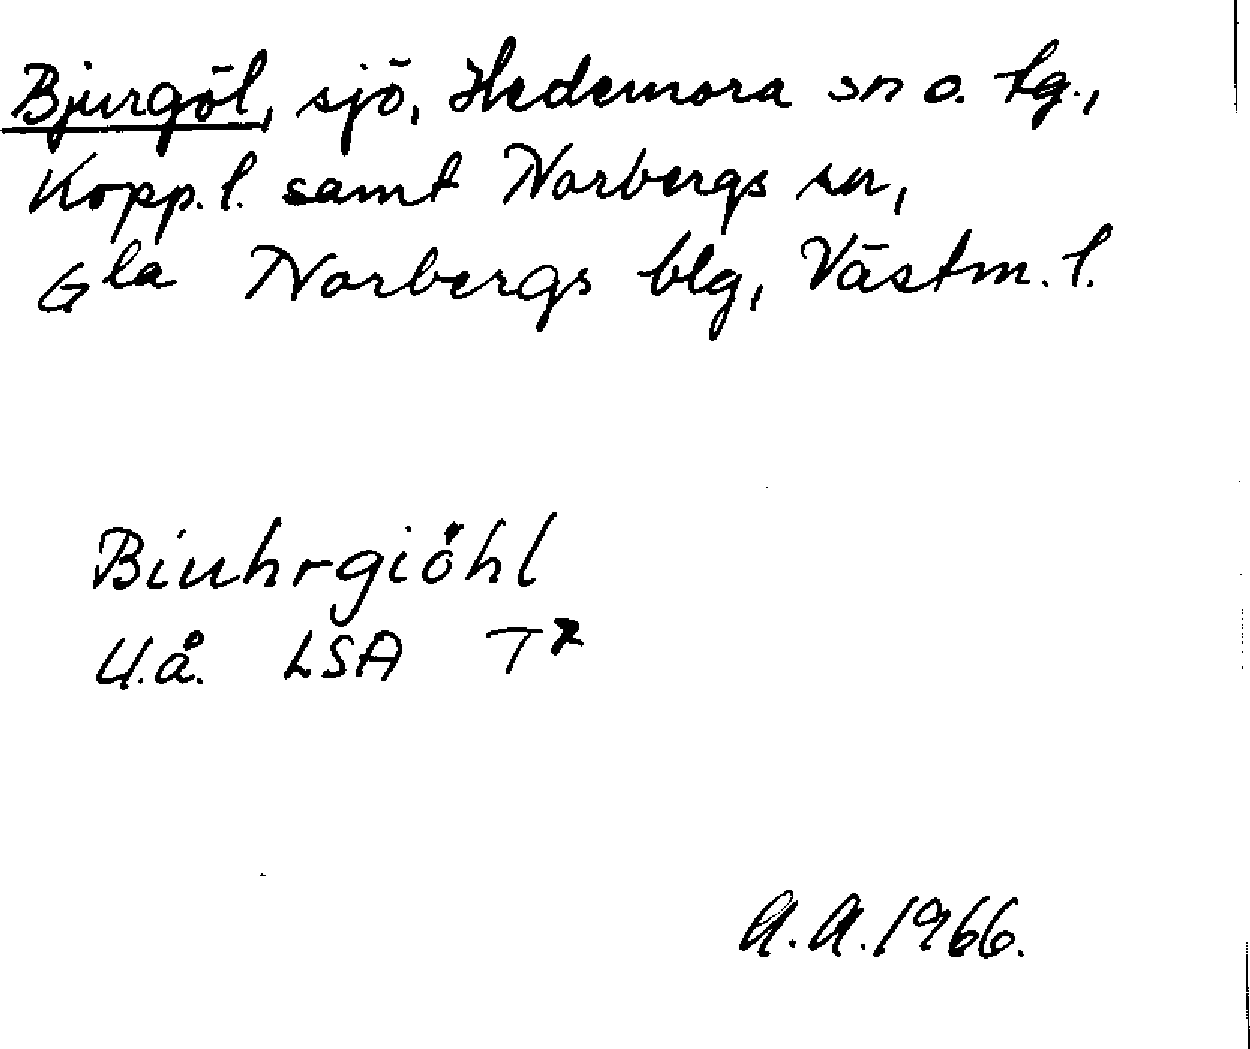 Bjurgöl, sjö, Hedemora sn o. tg.,
Kopp. l. samt Norbergs sn,
Gla Norbergs blg, Västm. l.
Biuhrgiöhl
U.å. LSA T
A.A. 1966.